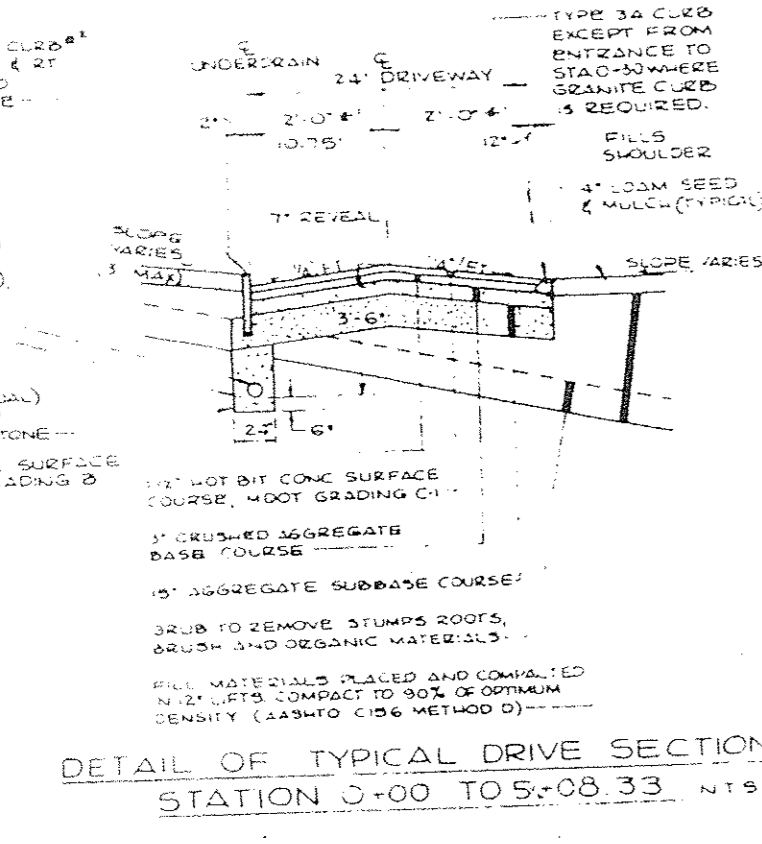 CURB
& RT
UNDERDRAIN
24' DRIVEWAY
TYPE 3A CURB
EXCEPT FROM
ENTRANCE TO
STA 0-30 WHERE
GRANITE CURB
IS REQUIRED.
2'-0"±
2'-0"±
10.75'
12"
FILLS
SHOULDER
4" LOAM SEED
& MULCH (TYPICAL)
7" REVEAL
SLOPE
VARIES
3 MAX)
SLOPE VARIES
3'-6"
24"
6"
STONE
SURFACE
GRADING B
HOT BIT CONC SURFACE
COURSE, MDOT GRADING C-1
3" CRUSHED AGGREGATE
BASE COURSE
AGGREGATE SUBBASE COURSE
GRUB TO REMOVE STUMPS ROOTS,
BRUSH AND ORGANIC MATERIALS.
FILL MATERIALS PLACED AND COMPACTED
IN 12" LIFTS. COMPACT TO 90% OF OPTIMUM
DENSITY (AASHTO C156 METHOD D)
DETAIL OF TYPICAL DRIVE SECTION
STATION 0+00 TO 5+08.33 NTS